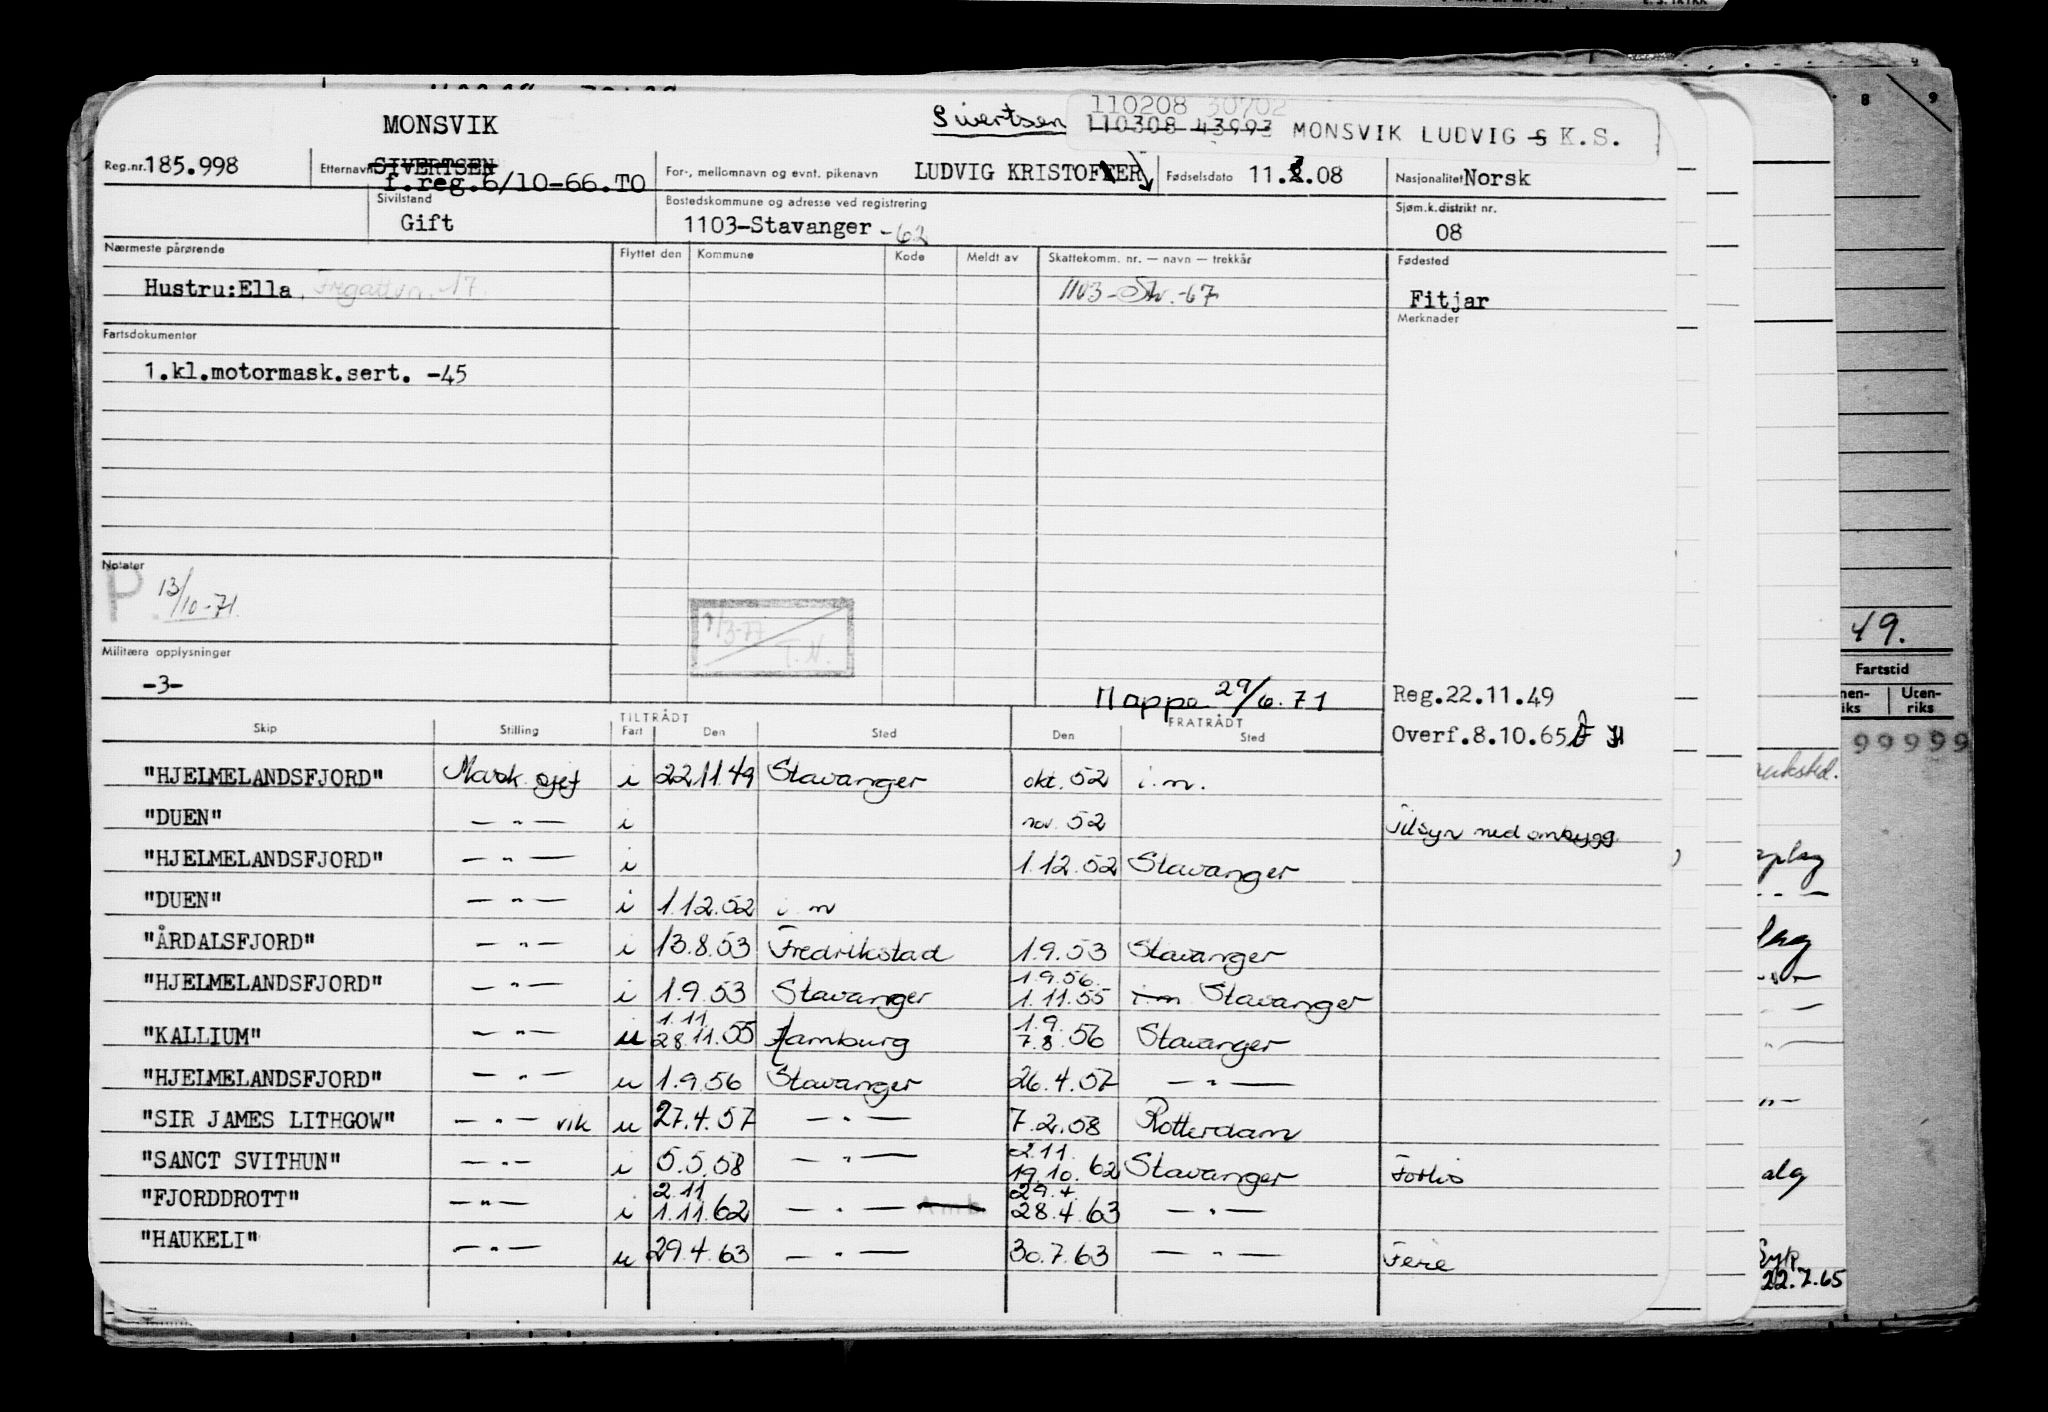 MONSVIK
Sivertsen 110208 30702
110308 43993 MONSVIK LUDVIG S K.S.
Reg.nr. 185.998 Etternavn SIVERTSEN For-, mellomnavn og evnt. pikenavn LUDVIG KRISTOFFER Fødselsdato 11.2.08 Nasjonalitet Norsk
f.reg.6/10-66.TO
Sivilstand Bostedskommune og adresse ved registrering Sjøm.k.distrikt nr.
Gift 1103-Stavanger -62 08
Nærmeste pårørende Flyttet den Kommune Kode Meldt av Skattekomm. nr. — navn — trekkår Fødested
Hustru:Ella, 17 1103-Stv.-67 Fitjar
Merknader
Fartsdokumenter
1.kl.motormask.sert. -45
Notater
P. 13/10-71.
1/3-77 T.N.
Militære opplysninger
-3-
Mappe 29/6.71 Reg.22.11.49
TILTRÅDT FRATRÅDT Overf.8.10.65
Skip Stilling Fart Den Sted Den Sted
"HJELMELANDSFJORD" Mask. sjef i 22.11.49 Stavanger okt. 52 i.m.
"DUEN" — " — i nov. 52 Tilsyn med ombygg
"HJELMELANDSFJORD" — " — i 1.12.52 Stavanger
"DUEN" — " — i 1.12.52 i m
"ÅRDALSFJORD" — " — i 13.8.53 Fredrikstad 1.9.53 Stavanger
1.9.56.
"HJELMELANDSFJORD" — " — i 1.9.53 Stavanger 1.11.55 i.m Stavanger
1.11. 1.9.
"KALLIUM" — " — u 28.11.55 Hamburg 7.8.56 Stavanger
"HJELMELANDSFJORD" — " — u 1.9.56 Stavanger 26.4.57 — " —
"SIR JAMES LITHGOW" — " — vik u 27.4.57 — " — 7.2.58 Rotterdam
2.11.
"SANCT SVITHUN" — " — i 5.5.58 — " — 19.10.62 Stavanger Forlis
2.11 29.4
"FJORDDROTT" — " — i 1.11.62 — " — 28.4.63 — " —
"HAUKELI" — " — u 29.4.63 — " — 30.7.63 — " — Ferie
8 9
49.
Fartstid
Uten-
riks
99999
22.7.65